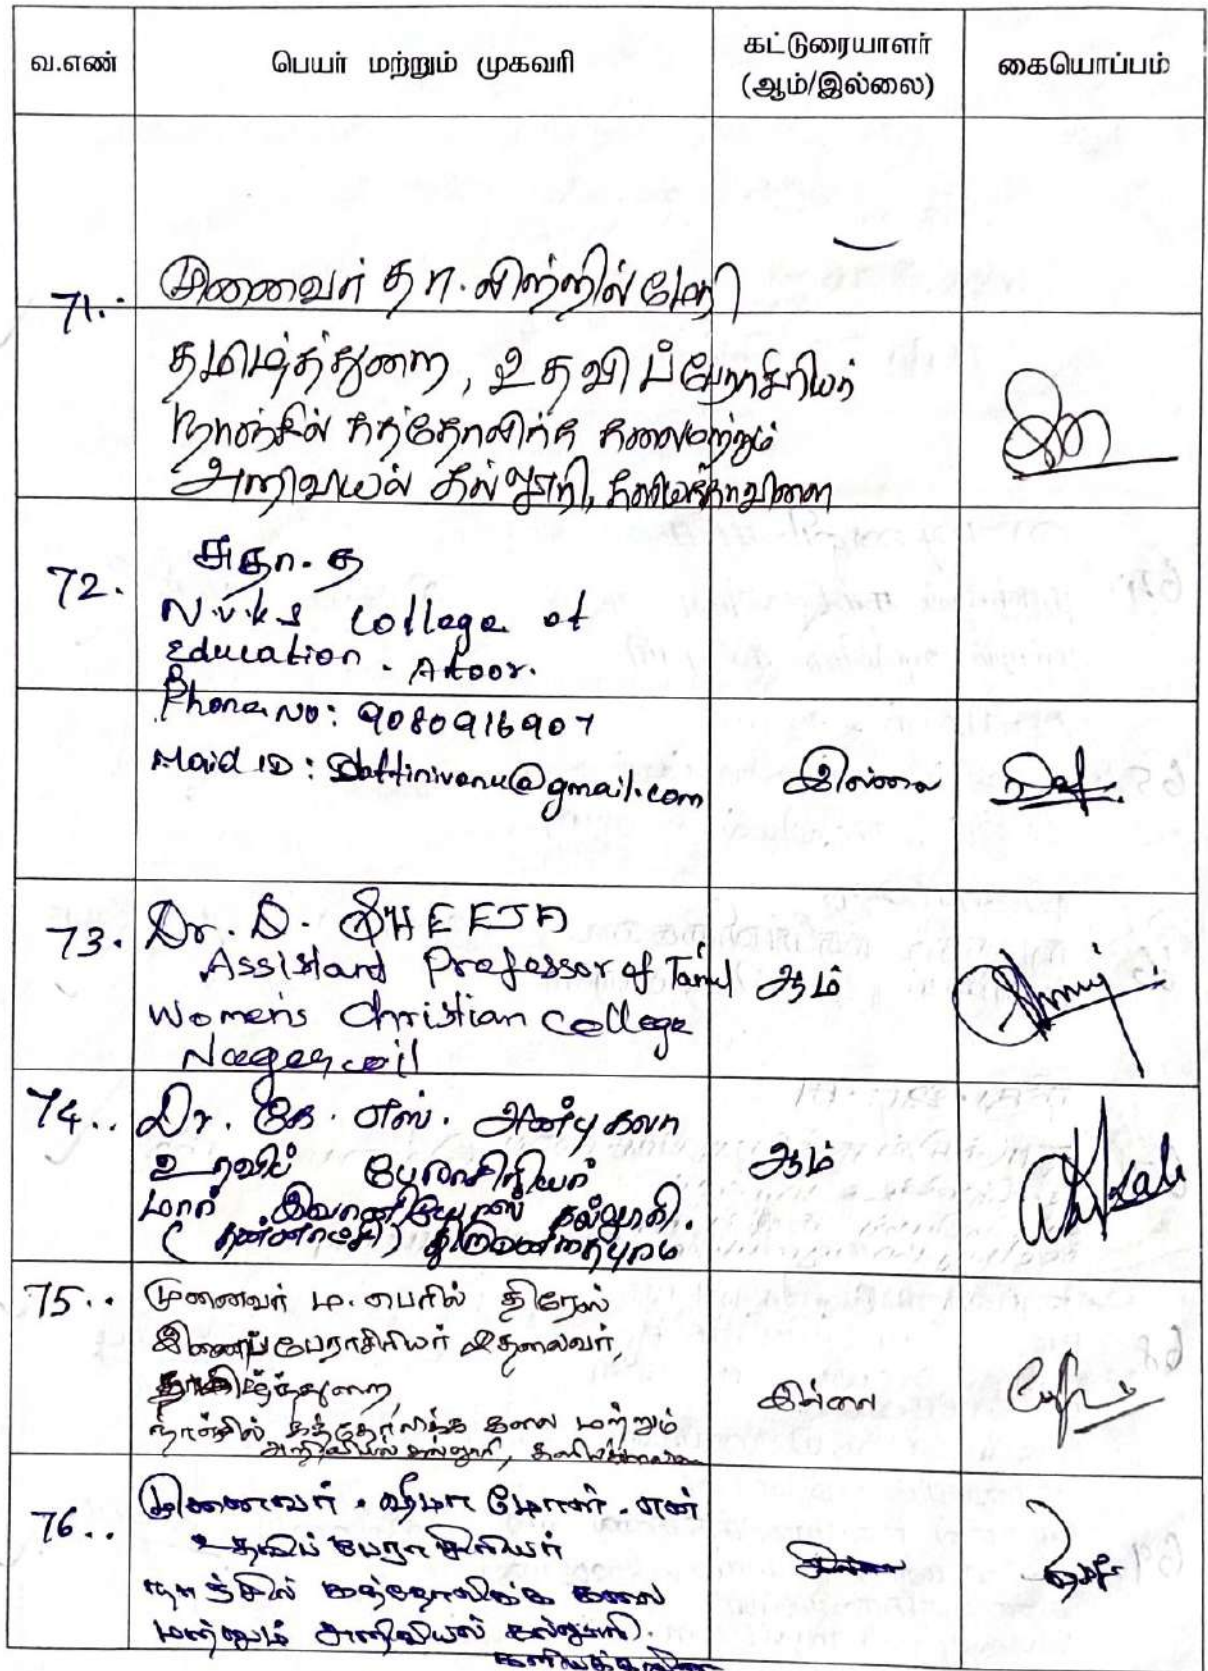 வ.எண்
பெயர் மற்றும் முகவரி
கட்டுரையாளர்
(ஆம்/இல்லை)
கையொப்பம்
71.
முனைவர் தா. லிற்றில் மேரி
தமிழ்த்துறை, உதவிப்பேராசிரியர்
நாஞ்சில் கத்தோலிக்க கலைமற்றும்
அறிவியல் கல்லூரி, களியக்காவிளை
72.
சுதா. த
N.V.K.S College of
Education. Attoor.
Phone No: 9080916907
Maid ID: @gmail.com
இல்லை
73.
Dr. D. SHEEJA
Assistant Professor of Tamil
ஆம்
Women's Christian College
Nagercoil
74..
Dr. கே. எஸ். அன்புகலா
உதவிப் பேராசிரியர்
ஆம்
மார் இவானியோஸ் கல்லூரி.
(தன்னாட்சி) திருவனந்தபுரம்
75..
முனைவர் ம. பெரில் திரேஸ்
இணைப்பேராசிரியர் & தலைவர்,
தமிழ்த்துறை,
நாஞ்சில் கத்தோலிக்க கலை மற்றும்
இல்லை
அறிவியல் கல்லூரி, களியக்காவிளை
76..
முனைவர். ஷீமா மோள். என்
உதவிப் பேராசிரியர்
நாஞ்சில் கத்தோலிக்க கலை
மற்றும் அறிவியல் கல்லூரி.
களியக்காவிளை